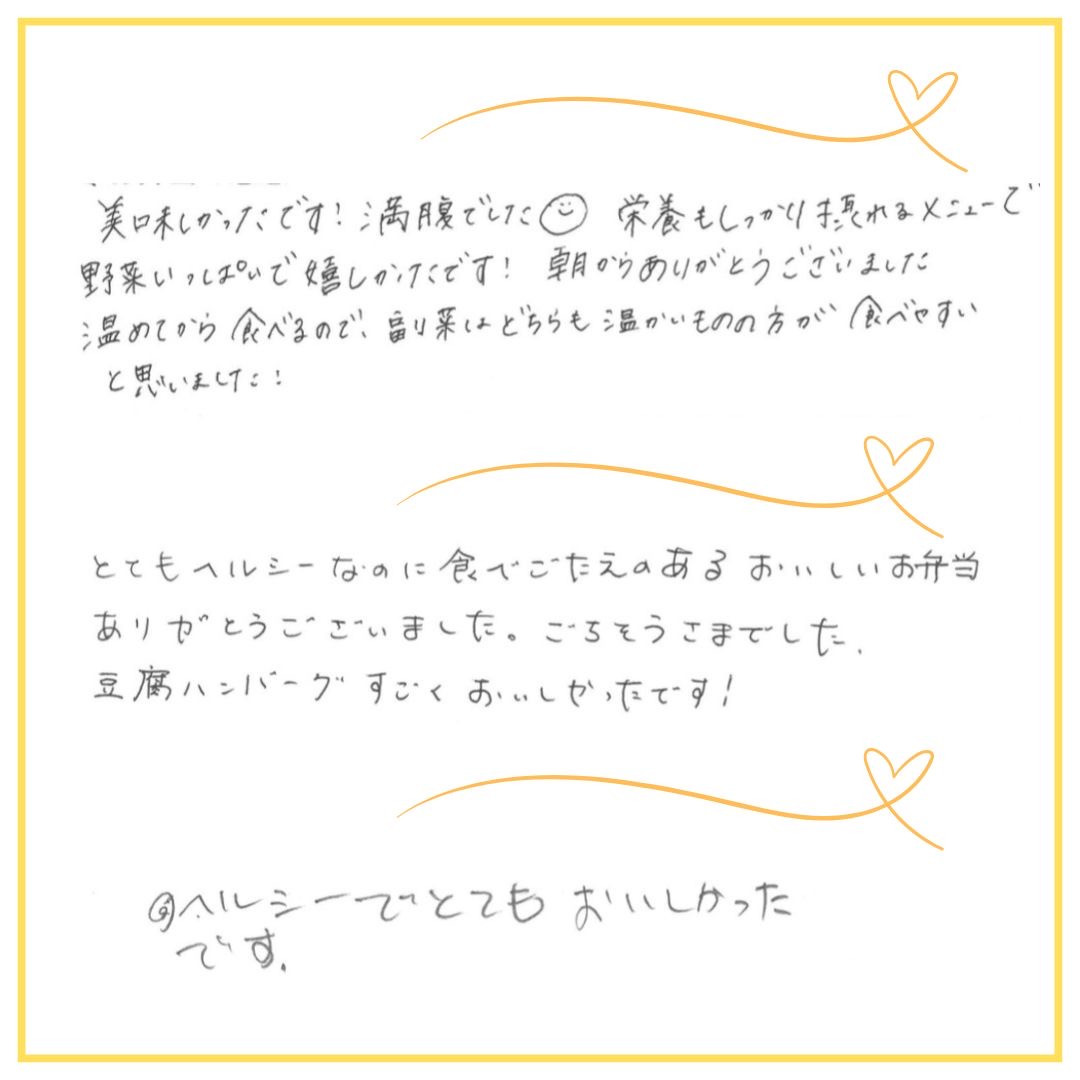 美味しかったです!満腹でした 栄養もしっかり摂れるメニューで
野菜いっぱいで嬉しかったです! 朝からありがとうございました
温めてから食べるので、副菜はどちらも温かいものの方が食べやすい
と思いました!
とてもヘルシーなのに食べごたえのあるおいしいお弁当
ありがとうございました。ごちそうさまでした.
豆腐ハンバーグすごくおいしかったです!
ヘルシーでとてもおいしかった
です.